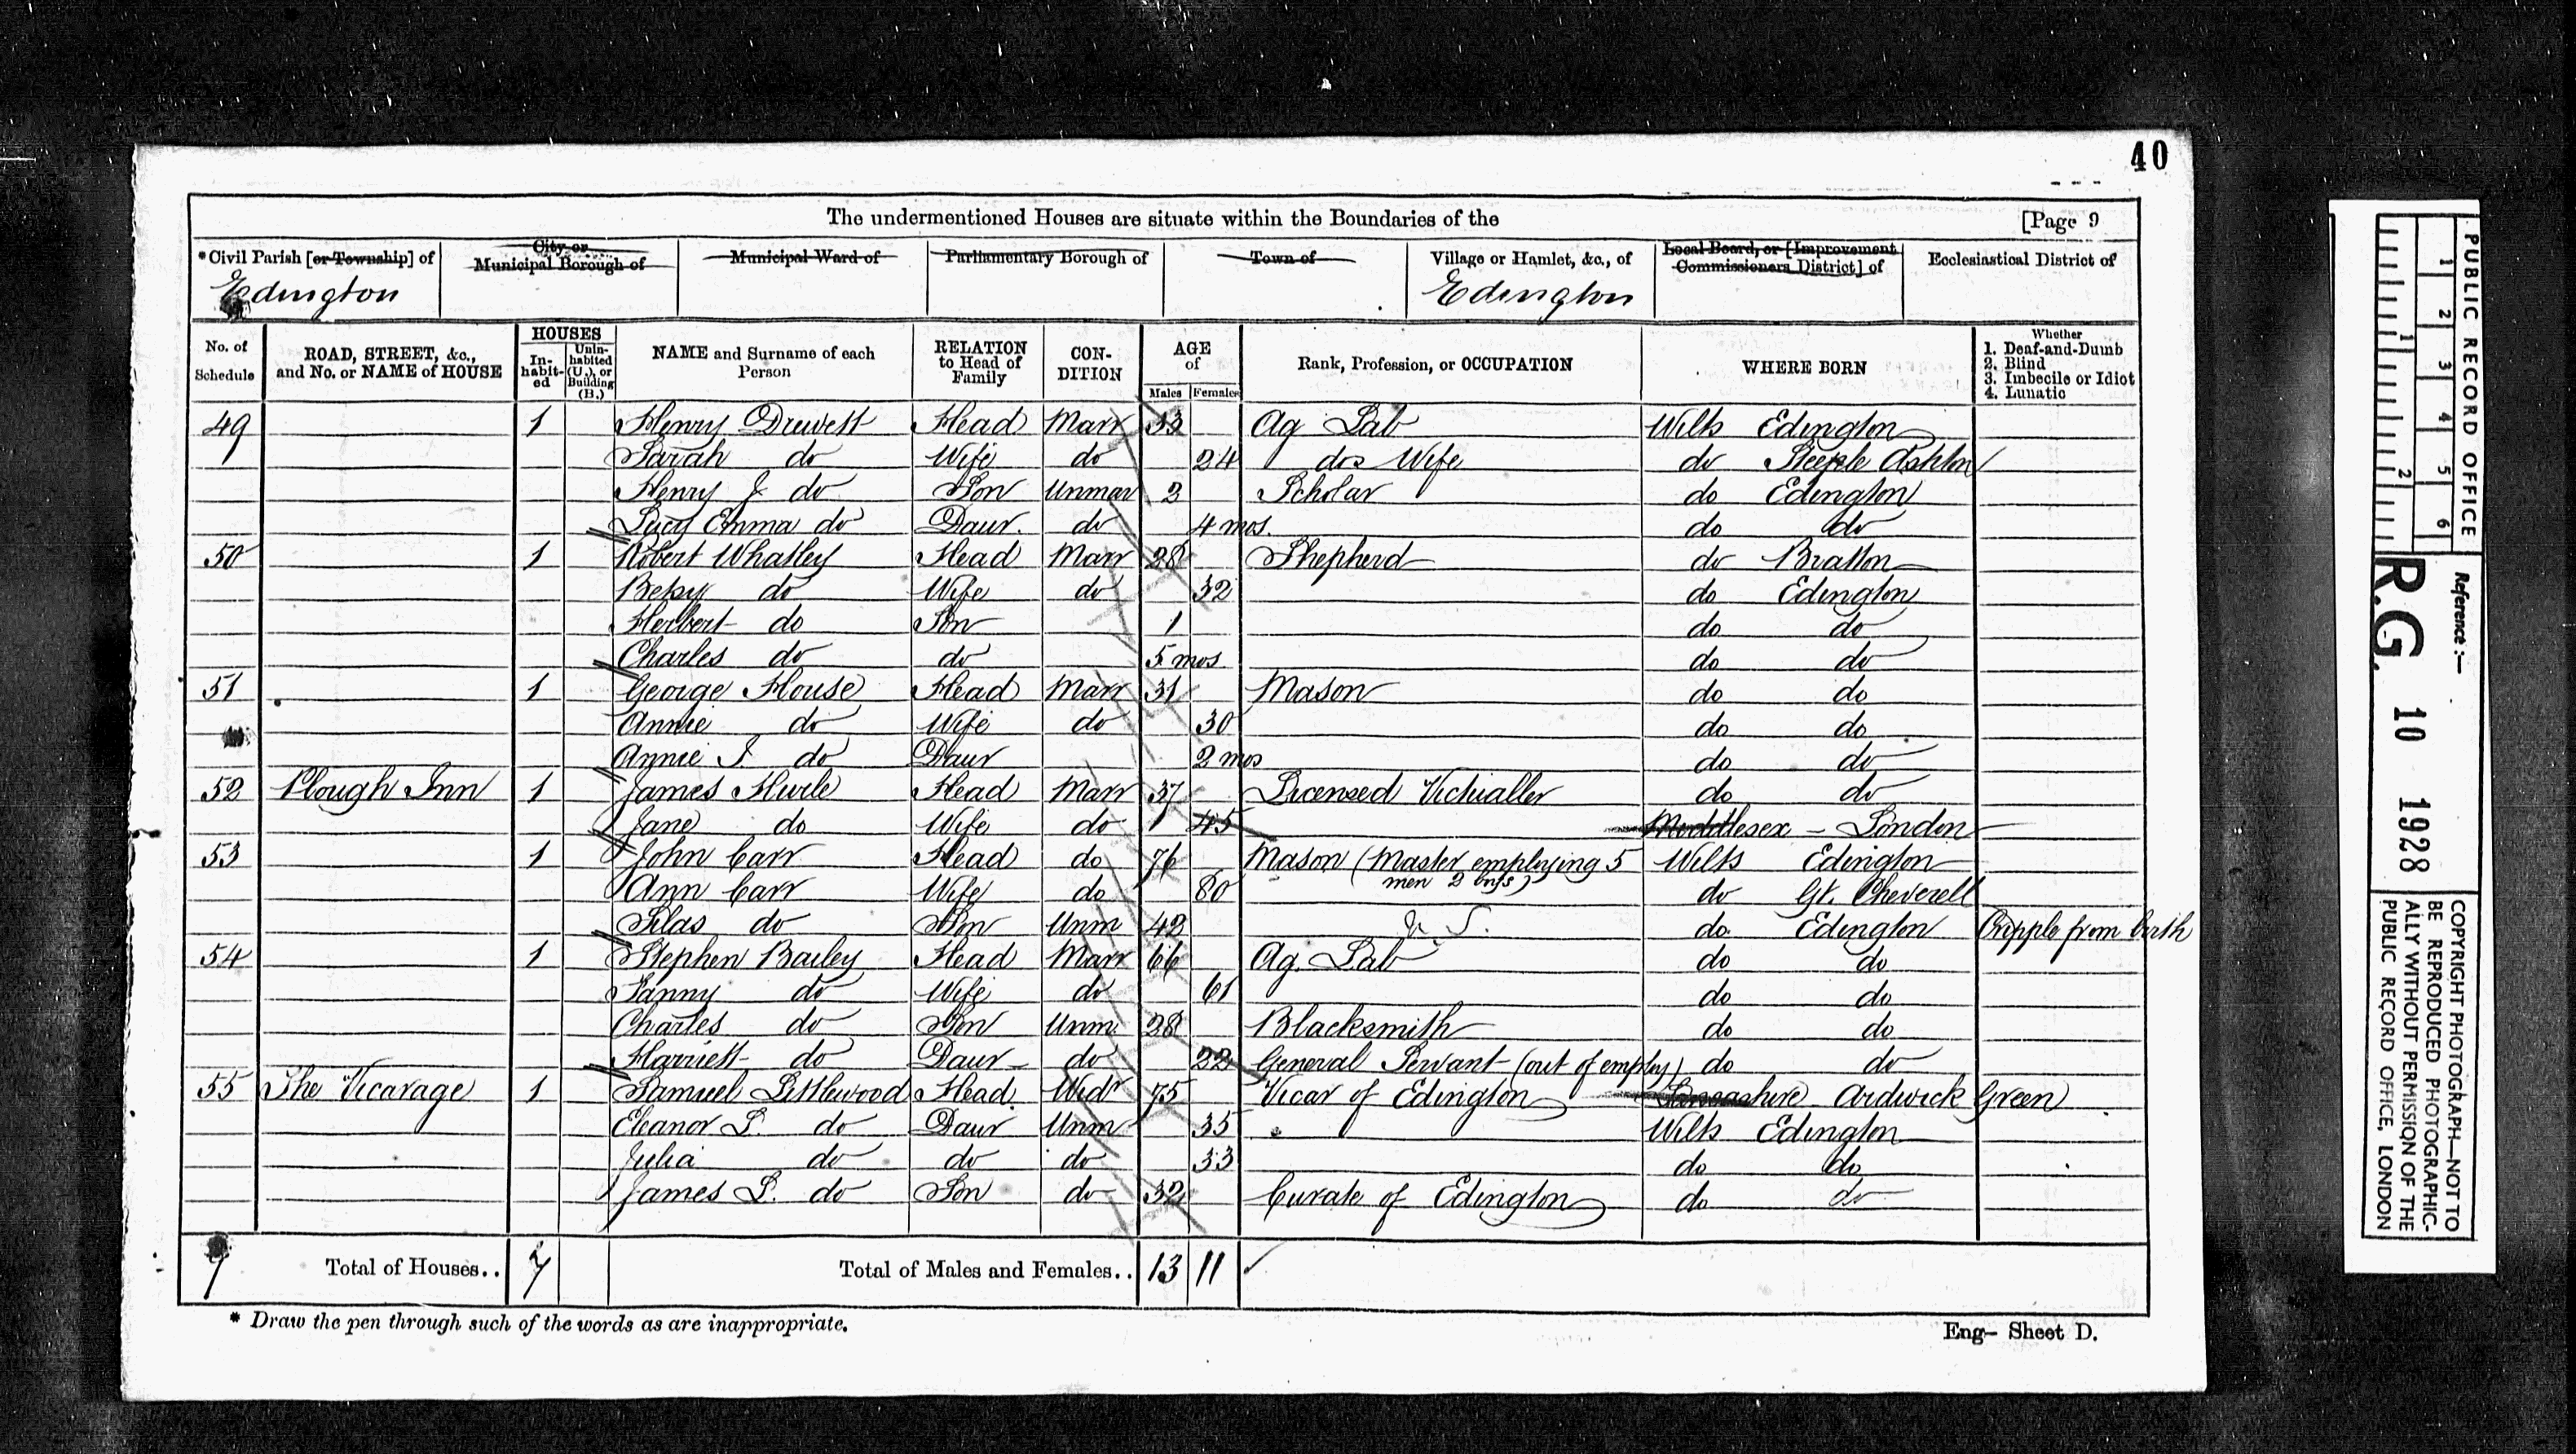 40
The undermentioned Houses are situate within the Boundaries of the [Page 9
*Civil Parish [or Township] of
Edington
City or Municipal Borough of
Municipal Ward of
Parliamentary Borough of
Town of
Village or Hamlet, &c., of
Edington
Local Board, or [Improvement Commissioners District] of
Ecclesiastical District of
No. of Schedule
ROAD, STREET, &c., and No. or NAME of HOUSE
HOUSES
In-habit-ed
Unin-habited (U.), or Building (B.)
NAME and Surname of each Person
RELATION to Head of Family
CON-DITION
AGE of
Males Females
Rank, Profession, or OCCUPATION
WHERE BORN
Whether
1. Deaf-and-Dumb
2. Blind
3. Imbecile or Idiot
4. Lunatic
49 1 Henry Drewett Head Marr 33 Ag Lab Wilts Edington
Sarah do Wife do 24 dos Wife do Steeple Ashton
Henry J. do Son Unmar 2 Scholar do Edington
Lucy Emma do Daur. do 4 mos. do do
50 1 Robert Whatley Head Marr 28 Shepherd do Bratton
Betsy do Wife do 32 do Edington
Herbert do Son 1 do do
Charles do do 5 mos do do
51 1 George House Head Marr 31 Mason do do
Annie do Wife do 30 do do
Annie do Daur 2 mos do do
52 Plough Inn 1 James Head Marr 37 Licensed Victualler do do
Jane do Wife do 45 Middlesex - London
53 1 John Carr Head do 76 Mason (Master employing 5 Wilts Edington
men 2 boys)
Ann Carr Wife do 80 do Gt. Cheverell
Silas do Son Unm 42 do Edington Cripple from birth
54 1 Stephen Bailey Head Marr 66 Ag. Lab do do
Fanny do Wife do 61 do do
Charles do Son Unm. 28 Blacksmith do do
Harriett do Daur do 22 General Servant (out of employ) do do
55 The Vicarage 1 Samuel Littlewood Head Widr 75 Vicar of Edington Lancashire Ardwick Green
Eleanor L. do Daur Unm 35 Wilts Edington
Julia do do do 33 do do
James L. do Son do 32 Curate of Edington do do
7 Total of Houses.. 7 Total of Males and Females.. 13 11
* Draw the pen through such of the words as are inappropriate.
Eng- Sheet D.
PUBLIC RECORD OFFICE
1 2 3 4 5 6
1 2
Reference :-
R.G. 10 1928
COPYRIGHT PHOTOGRAPH—NOT TO
BE REPRODUCED PHOTOGRAPHIC-
ALLY WITHOUT PERMISSION OF THE
PUBLIC RECORD OFFICE, LONDON